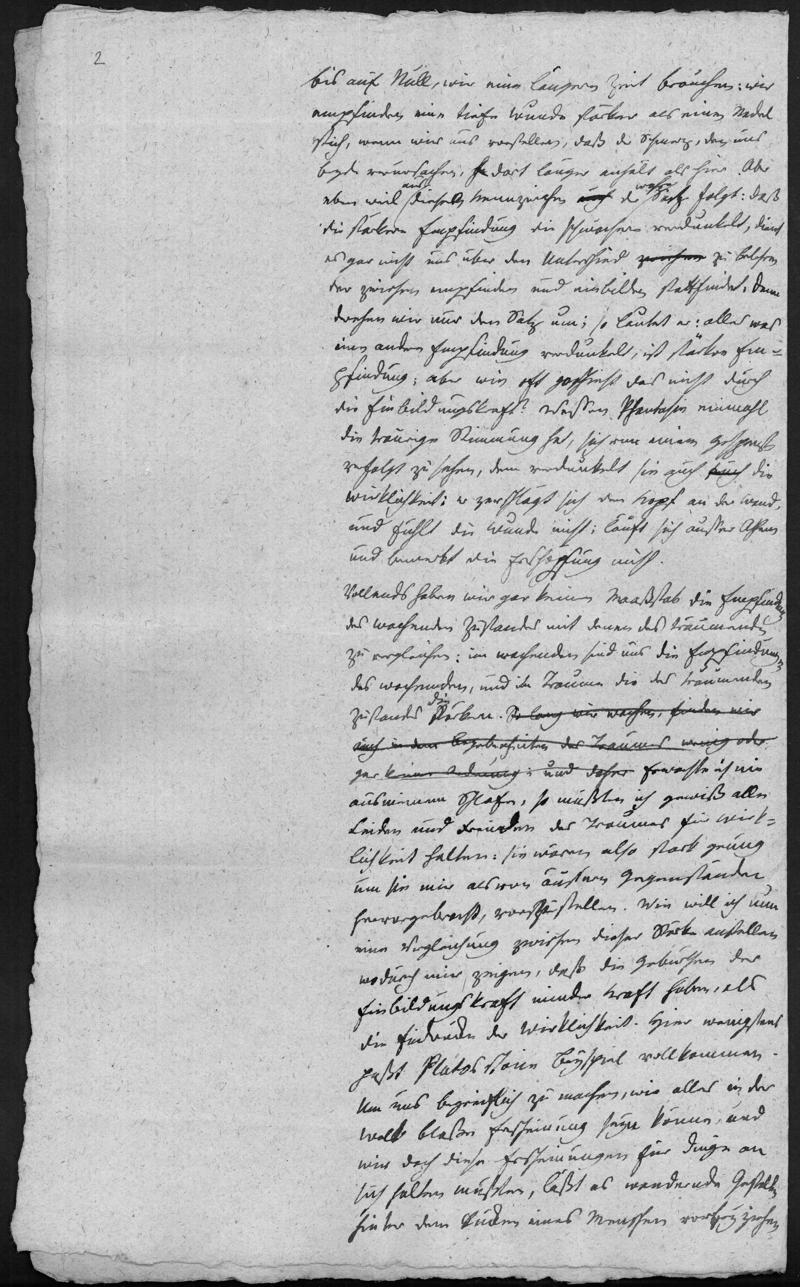 2
bis auf Null, wir eine längere Zeit brauchen: wir
empfinden eine tiefe Wunde stärker als einen Nadel
stich, wenn wir uns vorstellen, daß der Schmerz, den uns
beyde verursachen, dort länger anhält als hier. Aber
eben weil aus diesem Kennzeichen auch der wahre Satz folgt: daß
die stärkere Empfindung die schwächere verdunkelt, dient
es gar nicht uns über den Unterschied zwischen zu belehren
der zwischen empfinden und einbilden stattfindet. Denn
drehen wir nur den Satz um; so lautet er: alles was
eine andere Empfindung verdunkelt, ist stärkere Em=
pfindung; aber wie oft geschieht das nicht durch
die Einbildungskraft? Wessen Phantasie einmahl
die traurige Stimmung hat, sich von einem Gespenst
verfolgt zu sehen, dem verdunkelt sie auch auch die
Wirklichkeit: er zerschlägt sich den Kopf an der Wand,
und fühlt die Wunde nicht; läuft sich ausser Athem
und bemerkt die Erschöpfung nicht.
Vollends haben wir gar keinen Maaßstab die Empfindungen
des wachenden Zustandes mit denen des träumenden
zu vergleichen: im wachenden sind uns die Empfindungen
des wachenden, und im Traume die des träumenden
Zustandes die stärkern. So lang wir wachen, finden wir
auch in den Begebenheiten des Traumes wenig oder
gar keine Ordnung: und daher Erwachte ich nie
aus meinem Schlafe, so müßten ich gewiß alle
Leiden und Freuden des Traumes für Wirk=
lichkeit halten: sie wären also stark genug
um sie mir als von äussern Gegenständen
hervorgebracht, vorzustellen. Wie will ich nun
eine Vergleichung zwischen dieser Stärke anstellen
wodurch mir zeigen, daß die Geburthen der
Einbildungskraft minder Kraft haben, als
die Eindrücke der Wirklichkeit. Hier wenigstens
paßt Platos Beyspiel vollkommen.
Um uns begreiflich zu machen, wie alles in der
Welt bloße Erscheinung seyn könne, und
wir doch diese Erscheinungen für Dinge an
sich halten müßten, läßt es wandernde Gestalten
hinter dem Rücken eines Menschen vorbey ziehen,